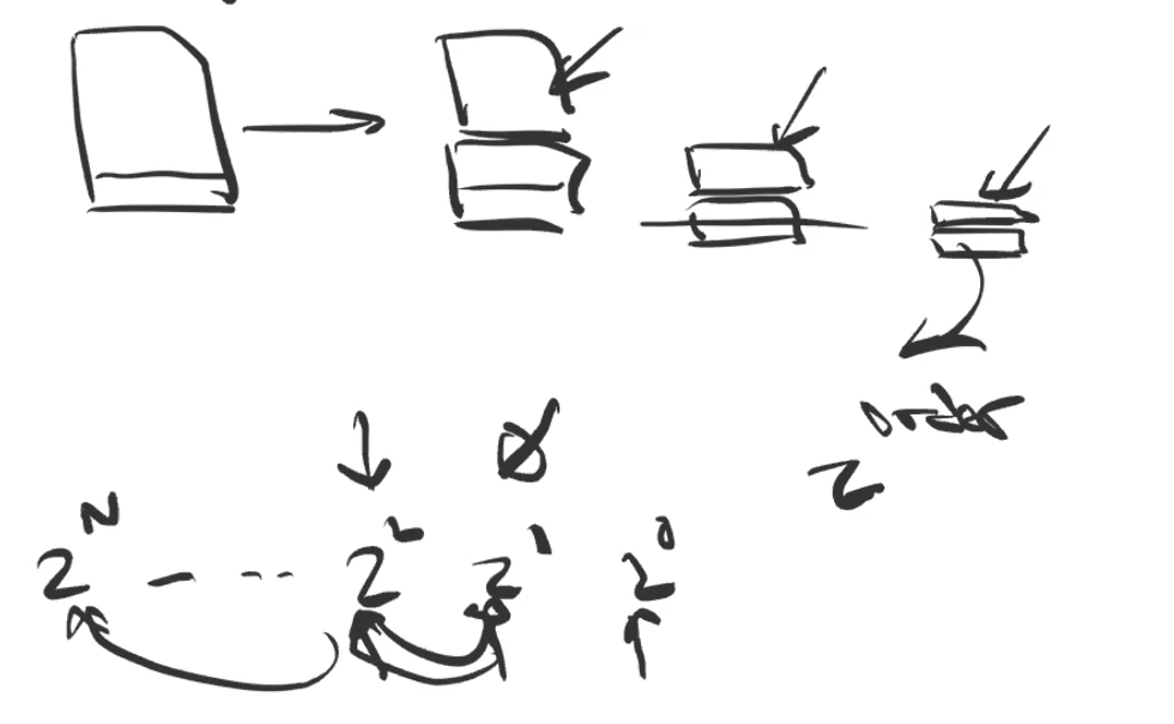 order
2
Ø
2^N - -- 2^2 2^1 2^0